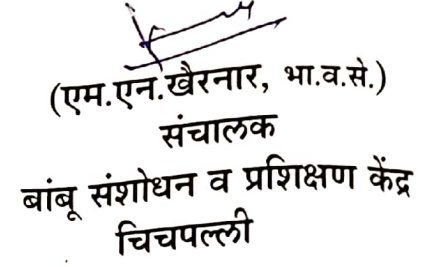 (एम.एन.खैरनार, भा.व.से.)
संचालक
बांबू संशोधन व प्रशिक्षण केंद्र
चिचपल्ली